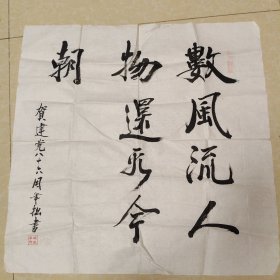 數風流人
物還看今
朝
賀建党八十六周年拙書